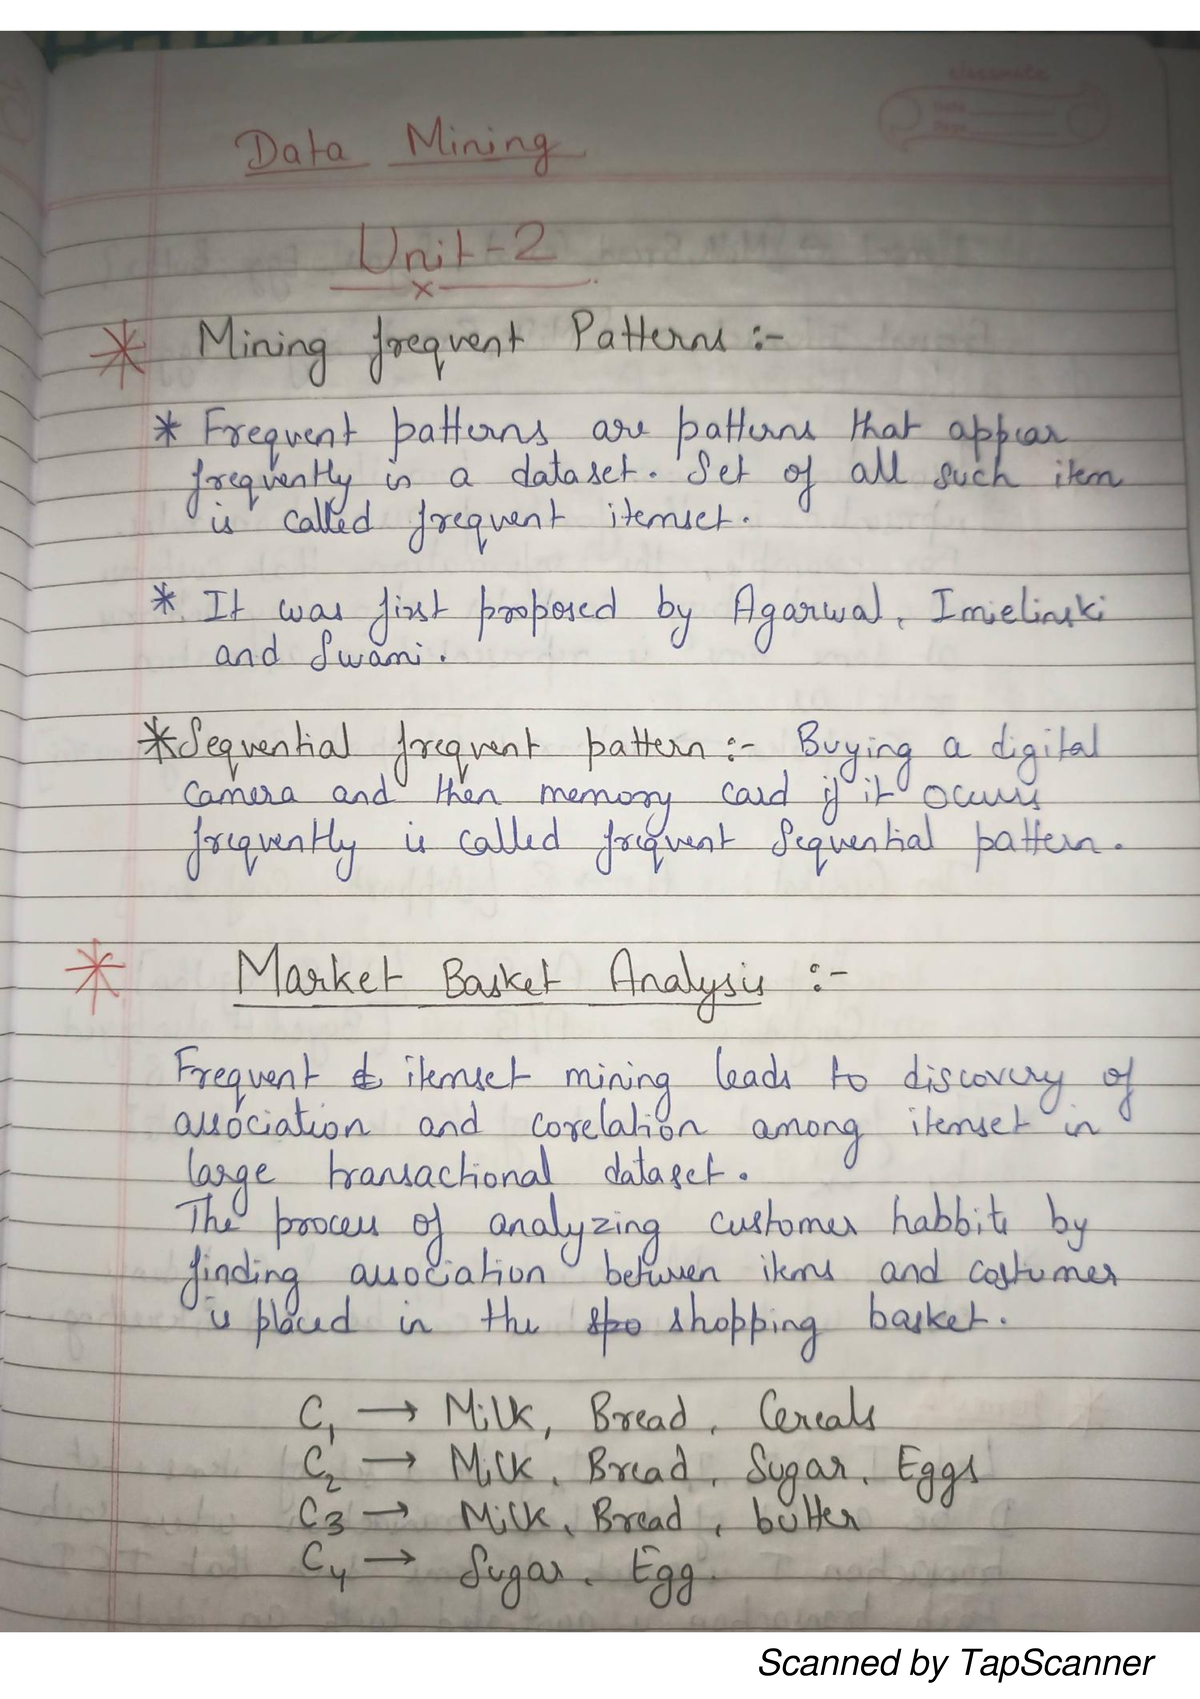 classmate
Data Mining
Unit-2
x
* Mining frequent Patterns :-
* Frequent patterns are patterns that appear
frequently in a dataset. Set of all such item
is called frequent itemset.
* It was first proposed by Agarwal, Imielinski
and Swami.
* Sequential frequent pattern :- Buying a digital
camera and then memory card if it occurs
frequently is called frequent Sequential pattern.
* Market Basket Analysis :-
Frequent itemset mining leads to discovery of
association and corelation among itemset in
large transactional dataset.
The process of analyzing customer habbits by
finding association between items and costumer
is placed in the shopping basket.
C1 → Milk, Bread, Cereals
C2 → Milk, Bread, Sugar, Eggs
C3 → Milk, Bread, butter
C4 → Sugar, Egg.
Scanned by TapScanner